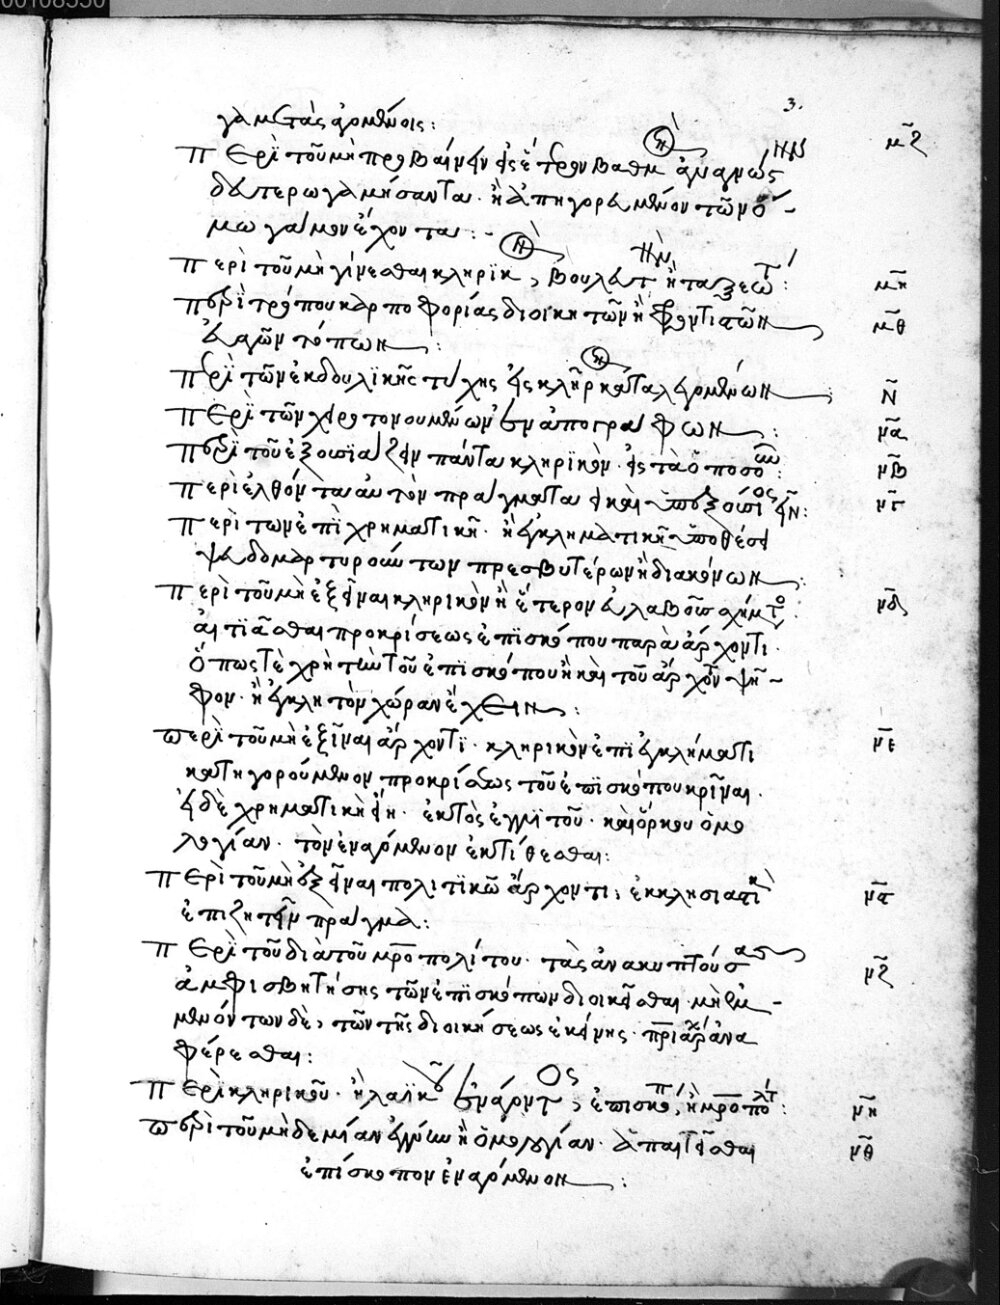 00108550
3.
γαμετὰς ἀγομένοις:
Περὶ τοῦ μὴ προβαίνειν εἰς ἕτερον βαθμ ἀναγνώστην μζ
δευτερογαμήσαντα. ἢ ἀπηγορευμένον τῶ νό-
μω γάμον ἔχοντα:-
Περὶ τοῦ μὴ γίνεσθαι κληρικ, βουλευτ ἢ ταξεώτ: μη
Περὶ τρόπου καρποφορίας διοικητῶν ἢ φροντιστῶν μθ
εὐαγῶν τόπων:
Περὶ τῶν ἐκ δουλικῆς τύχης εἰς κλῆρ καταλεγομένων: ν
Περὶ τῶν χειροτονουμένων ἐναπογράφων: να
Περὶ τοῦ ἐξουσιάζειν πάντα κληρικὸν. εἰς τὰ ὁποσοῦν: νβ
Περιελθόντα αὐτὸν πράγματα εἰ καὶ ὑπεξούσιός ἐστιν: νγ
Περὶ τῶν ἐπὶ χρηματικῆ. ἢ ἐγκληματικῆ ὑποθέσει
ψευδομαρτυρούντων πρεσβυτέρων ἢ διακόνων:
Περὶ τοῦ μὴ ἐξεῖναι κληρικὸν ἢ ἕτερον εὐλαβοῦς σχήματος: νδ
αἰτιᾶσθαι προκρίσεως ἐπισκόπου παρὰ ἄρχοντι.
ὅπως τὲ χρὴ τὴν τοῦ ἐπισκόπου ἢ καὶ τοῦ ἄρχοντ ψῆ-
φον. ἢ ἔγκλητον χώραν ἔχειν:
Περὶ τοῦ μὴ ἐξεῖναι ἄρχοντι. κληρικὸν ἐπὶ ἐγκλήματι νε
κατηγορούμενον προκρίσεως τοῦ ἐπισκόπου κρῖναι.
εἰ δὲ χρηματικὴ εἴη. ἐκτὸς ἐγγυητοῦ. καὶ ὅρκου ὁμο
λογίαν. τὸν ἐναγόμενον ἐκτίθεσθαι:
Περὶ τοῦ μὴ ἐξεῖναι πολιτικῶ ἄρχοντι, ἐκκλησιαστικὸν νϛ
ἐπιζητεῖν πράγμα:
Περὶ τοῦ διὰ τοῦ μροπολίτου. τὰς ἀνακυπτούσας νζ
ἀμφισβητήσεις τῶν ἐπισκόπων διοικεῖσθαι. μὴ ἐμ-
μενόντων δὲ, τῶν τῆς διοικήσεως ἐκείνης. πριάρχ ἀνα
φέρεσθαι:
Περὶ κληρικοῦ. ἢ λαϊκοῦ ἐνάγοντος, ἐπίσκοπ, ἢ μροπολίτ: νη
Περὶ τοῦ μηδεμίαν ἐγγύην ἢ ὁμολογίαν. ἀπαιτεῖσθαι νθ
ἐπίσκοπον ἐναγόμενον: